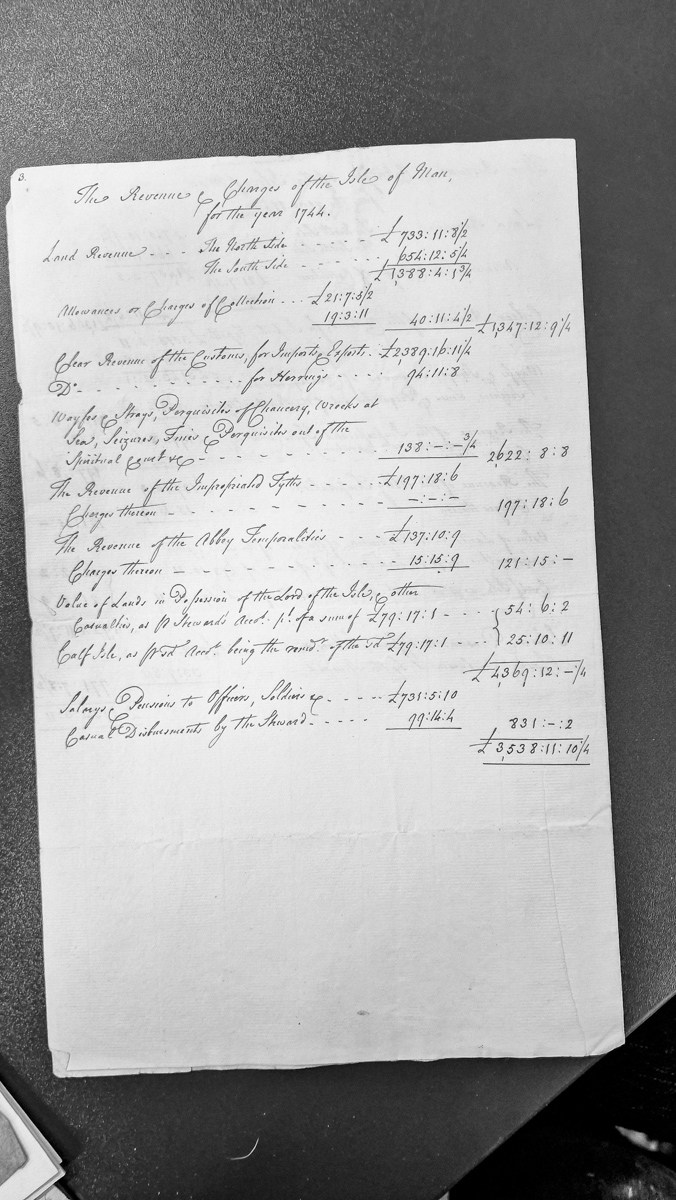 3.
The Revenue & Charges of the Isle of Man,
for the year 1744.
Land Revenue - - - The North Side - - - - - - £733:11:8½
The South Side - - - - - - 654:12:5¼
£1388:4:1¾
Allowances or Charges of Collection - - - £21:7:5½
19:3:11 40:11:4½ £1,347:12:9¼
Clear Revenue of the Customs, for Imports & Exports - : £2389:16:11¼
Do. - - - - - - - - - - - for Herrings - - - - 94:11:8
Wayfes & Strays, Perquisites of Chancery, Wrecks at
Sea, Seizures, Fines & Perquisites out of the
Spiritual Court &c - - - - - - - - - 138:-:-¾ 2622:8:8
The Revenue of the Impropriated Tyths - - - - £197:18:6
Charges thereon - - - - - - - - - -:-:- 197:18:6
The Revenue of the Abbey Temporalities - - - - £137:10:9
Charges thereon - - - - - - - - - 15:15:9 121:15:-
Value of Lands in Possession of the Lord of the Isle, & other
Casualties, as pr Steward's Acct. pt. of a sum of £79:17:1 - - - - { 54:6:2
Calf Isle, as pr sd. Acct. being the remdr. of the sd. £79:17:1 - - - - 25:10:11
£4369:12:-¼
Salarys & Pensions to Officers, Soldiers &c - - - - £731:5:10
Casual Disbursments by the Steward - - - - - 99:14:4 831:-:2
£3,538:11:10¼